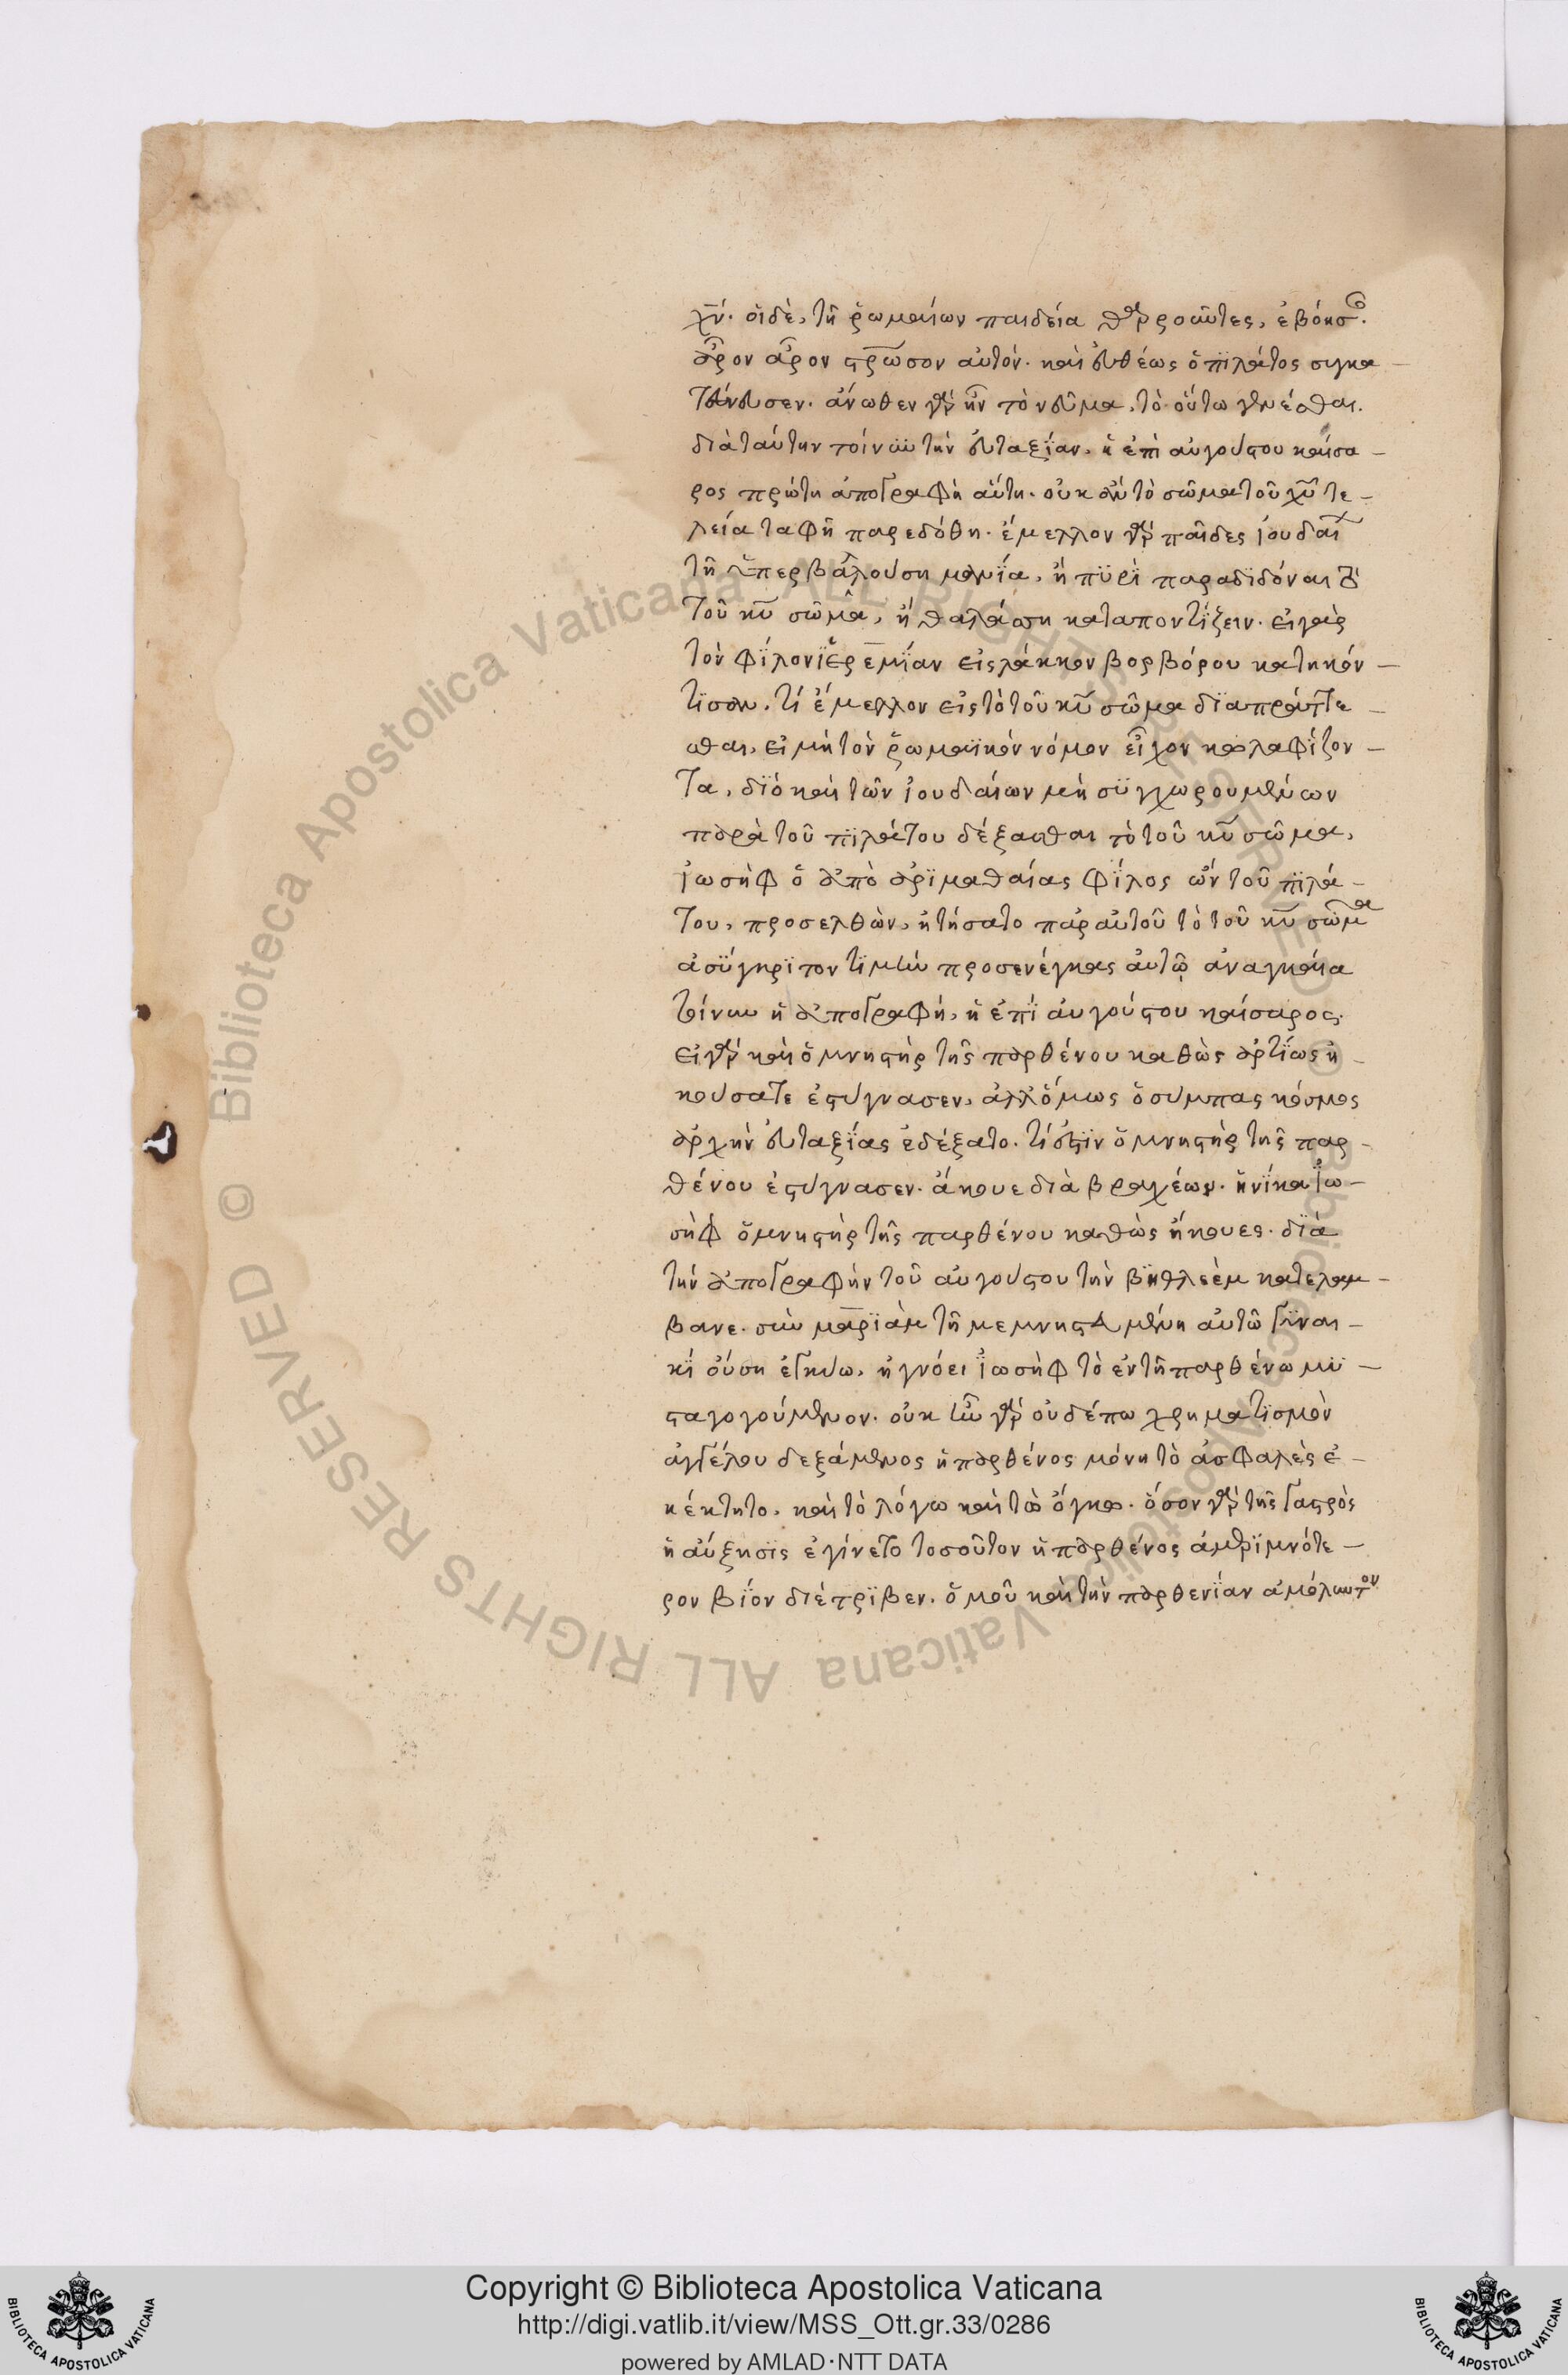 χν̅. οἱ δὲ, τῆ ῥωμαίων παιδεία θαρροῦντες, ἐβόησ
ἆρον ἆρον στρωσον αὐτόν. καὶ εὐθέως ὁ πϊλάτος συγκα
τένευσεν. ἄνωθεν γὰρ ἦν τὸ νεῦμα, τὸ οὕτω γενέσθαι.
διὰ ταύτην τοίνυν τὴν εὐταξΐαν, ἡ ἐπὶ αὐγούστου καίσα
ρος πρώτη ἀπογραφὴ αὕτη. οὐκ ἂν τὸ σῶμα τοῦ χυ̅ τε
λεία ταφῆ παρεδόθη. ἔμελλον γὰρ παῖδες ἰουδαί
τῆ ὑπερβαλούση μανΐα, ἢ πϋρὶ παραδϊδόναι τὸ
τοῦ κυ̅ σῶμα, ἢ θαλάσση καταποντΐζειν. εἰ γὰρ
τὸν φΐλον ϊερεμΐαν εἰς λάκκον βορβόρου κατηκόν
τϊσαν. τί ἔμελλον εἰς τὸ τοῦ κυ̅ σῶμα δϊαπράττε
σθαι, εἰ μὴ τὸν ῥωμαϊκὸν νόμον εἶχον κολαφΐζον
τα, δϊὸ καὶ τῶν ἰουδαίων μὴ σϋγχωρουμένων
παρὰ τοῦ πϊλάτου δέξασθαι τὸ τοῦ κυ̅ σῶμα,
ἰωσὴφ ὁ ἀπὸ ἀρϊμαθαίας φΐλος ὢν τοῦ πϊλά
του, προσελθὼν, ἠτήσατο παρ αὐτοῦ τὸ τοῦ κυ̅ σῶμα
ἀσϋγκρϊτον τϊμὴν προσενέγκας αὐτῷ ἀναγκαία
τοίνυν ἡ ἀπογραφὴ, ἡ ἐπῒ αὐγούστου καίσαρος.
εἰ γὰρ καὶ ὁ μνηστὴρ τῆς παρθένου καθὼς ἀρτΐως ἠ
κούσατε ἐστύγνασεν, ἀλλ ὅμως ὁ σύμπας κόσμος
ἀρχὴν εὐταξΐας ἐδέξατο. τί ἐστϊν ὁ μνηστὴρ τῆς παρ
θένου ἐστύγνασεν. ἄκουε διὰ βραχέων. ἡνΐκα ἰω
σὴφ ὁ μνηστὴρ τῆς παρθένου καθὼς ἤκουες. δϊὰ
τὴν ἀπογραφὴν τοῦ αὐγούστου τὴν βηθλεὲμ κατελαμ
βανε. σὺν μαρϊὰμ τῆ μεμνηστευμένη αὐτῶ γϋναι
κΐ οὔση ἐγκύω, ἠγνόει ἰωσὴφ τὸ ἐν τῆ παρθένω μϋ
σταγογούμενον. οὐκ ἦν γὰρ οὐδέπω χρηματϊσμὸν
ἀγγέλου δεξάμενος ἡ παρθένος μόνη τὸ ἀσφαλὲς ἐ
κέκτητο. καὶ τὸ λόγω καὶ τῶ ὄγκο. ὅσον γὰρ τῆς γαστρὸς
ἡ αὔξησϊς ἐγίνετο τοσοῦτον ἡ παρθένος ἀμερϊμνότε
ρον βΐον διέτρϊβεν. ὁμοῦ καὶ τὴν παρθενΐαν ἀμόλυντον